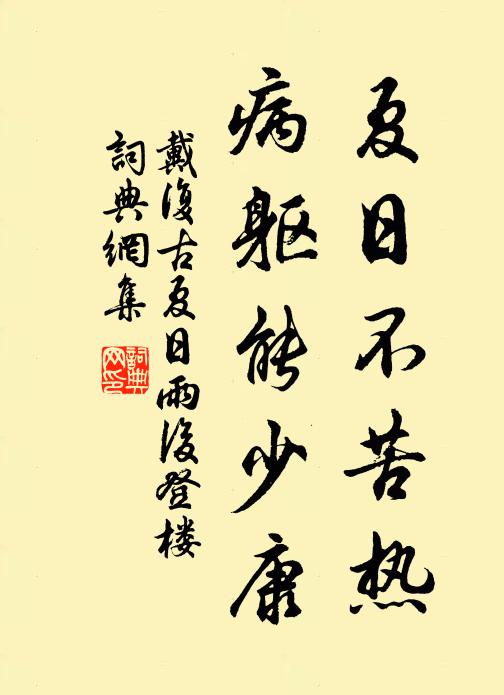 夏日不苦热
病躯能少康
戴復古夏日雨後登楼
詞典網集
詞典网印